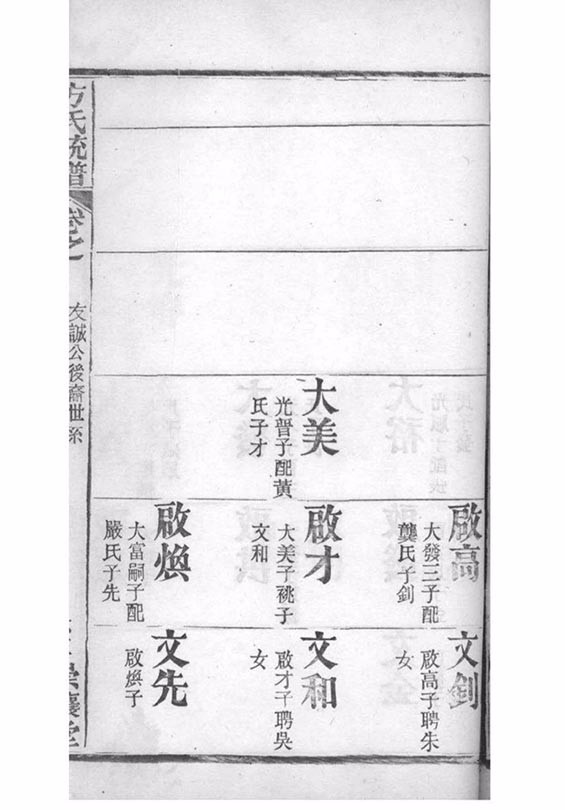 大美
光晉子配黃
氏子才
啟高
大發三子配
龔氏子釗
啟才
大美子祧子
文和
啟煥
大富嗣子配
嚴氏子先
文釗
啟高子聘朱
女
文和
啟才子聘吳
女
文先
啟煥子
方氏統譜
卷之一
友誠公後裔世系